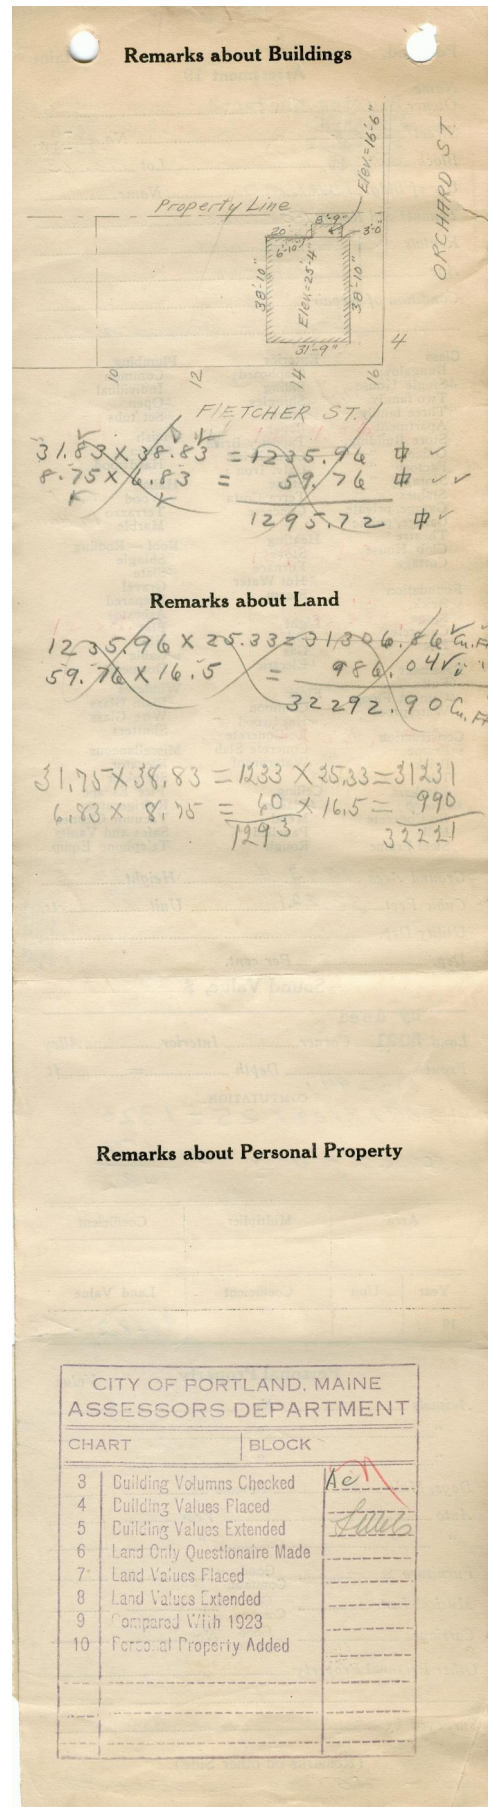 Remarks about Buildings
Elev.=16'-6"
ORCHARD ST.
Property Line
8'-9"
20
3'-0"
6'-10"
38'-10"
Elev.=25'-4"
38'-10"
31'-9"
4
10 12 14 16
FLETCHER ST.
31.83 x 38.83 = 1235.96
8.75 x 6.83 = 59.76
1295.72
Remarks about Land
1235.96 x 25.33 = 31306.86 Cu. Ft
59.76 x 16.5 = 986.04
32292.90 Cu. Ft
31.75 x 38.83 = 1233 x 25.33 = 31231
6.83 x 8.75 = 60 x 16.5 = 990
1293 32221
Remarks about Personal Property
CITY OF PORTLAND, MAINE
ASSESSORS DEPARTMENT
CHART BLOCK
3 Building Volumns Checked AC
4 Building Values Placed
5 Building Values Extended
6 Land Only Questionaire Made
7 Land Values Placed
8 Land Values Extended
9 Compared With 1923
10 Personal Property Added